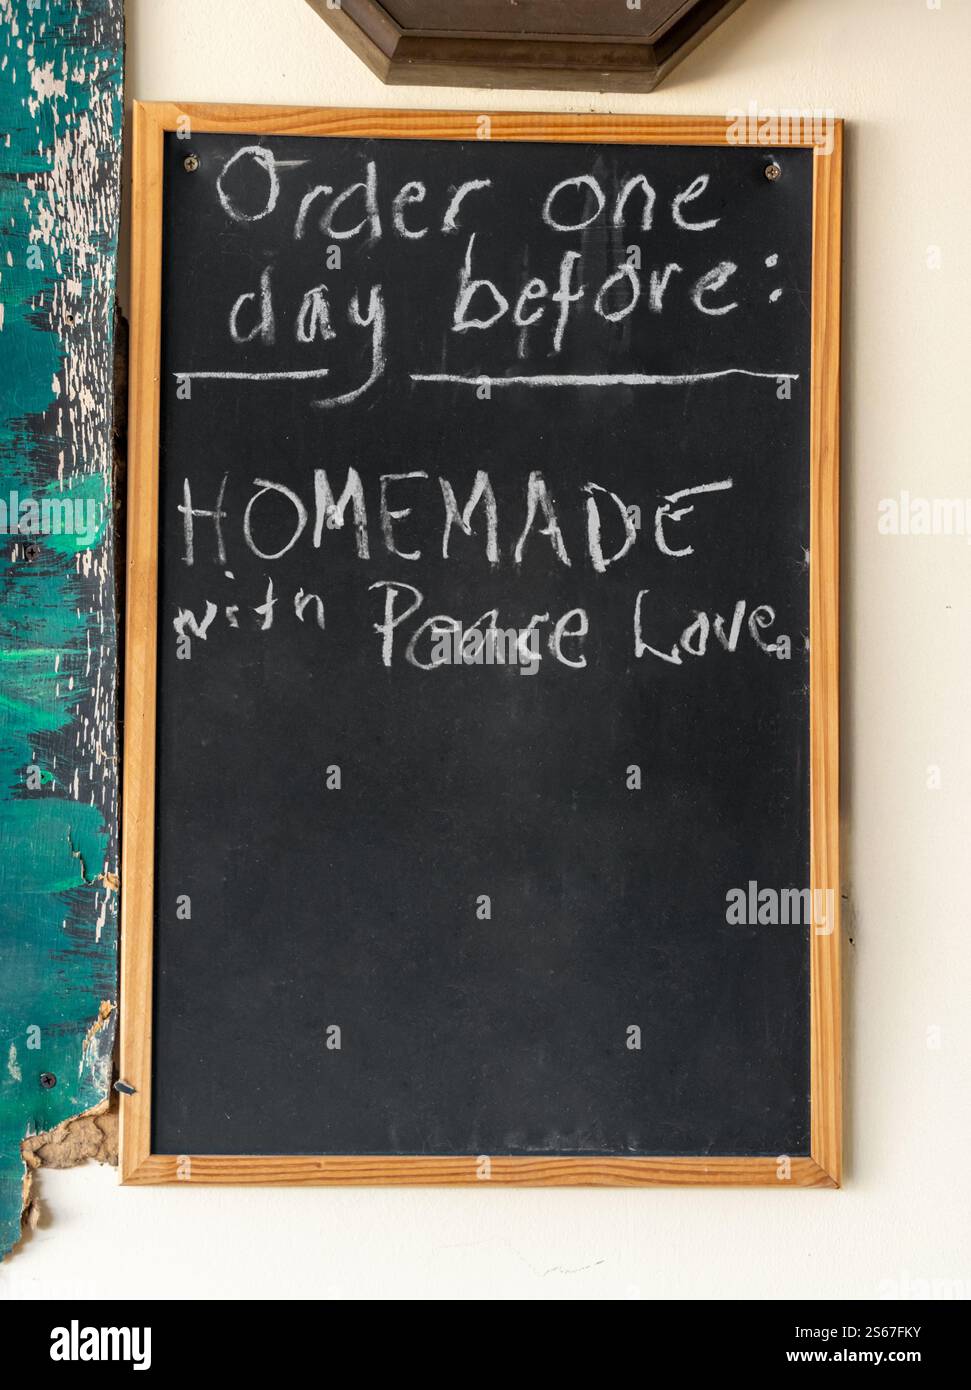 Order one
day before:
HOMEMADE
with Peace Love
alamy
Image ID: 2S67FKY
www.alamy.com